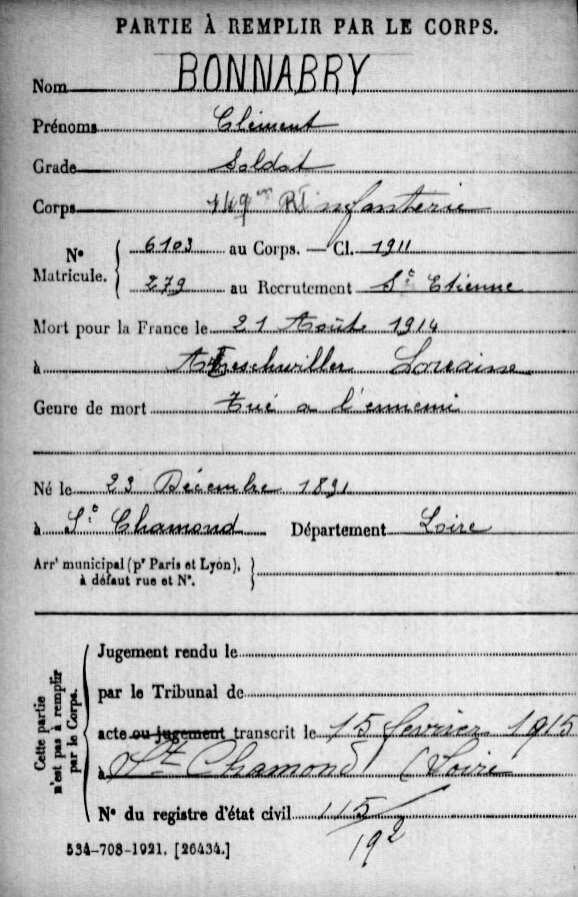 PARTIE À REMPLIR PAR LE CORPS.
Nom BONNABRY
Prénoms Clément
Grade Soldat
Corps 149 em RI infanterie
N° Matricule. 6103 au Corps. — Cl. 1911
279 au Recrutement St Etienne
Mort pour la France le 21 Août 1914
à Abreschwiller Lorraine
Genre de mort Tué a l'ennemi
Né le 23 Décembre 1891
à St Chamond Département Loire
Arr' municipal (pr Paris et Lyon),
à défaut rue et N°.
Cette partie n'est pas à remplir par le Corps.
Jugement rendu le
par le Tribunal de
acte ou jugement transcrit le 15 fevrier 1915
à St Chamond (Loire
N° du registre d'état civil 115/192
534-708-1921. [26434.]